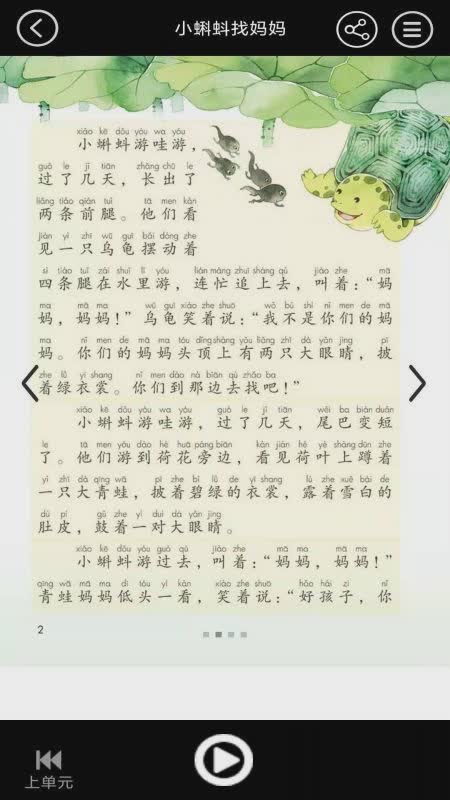 小蝌蚪找妈妈
xiǎo kē dǒu yóu wa yóu
小蝌蚪游哇游，
guò le jǐ tiān zhǎng chū le
过了几天，长出了
liǎng tiáo qián tuǐ tā men kàn
两条前腿。他们看
jiàn yì zhī wū guī bǎi dòng zhe
见一只乌龟摆动着
sì tiáo tuǐ zài shuǐ lǐ yóu lián máng zhuī shàng qù jiào zhe mā
四条腿在水里游，连忙追上去，叫着：“妈
ma mā ma wū guī xiào zhe shuō wǒ bú shì nǐ men de mā
妈，妈妈！”乌龟笑着说：“我不是你们的妈
ma nǐ men de mā ma tóu dǐng shàng yǒu liǎng zhī dà yǎn jing pī
妈。你们的妈妈头顶上有两只大眼睛，披
zhe lǜ yī shang nǐ men dào nà biān qù zhǎo ba
着绿衣裳。你们到那边去找吧！”
xiǎo kē dǒu yóu wa yóu guò le jǐ tiān wěi ba biàn duǎn
小蝌蚪游哇游，过了几天，尾巴变短
le tā men yóu dào hé huā páng biān kàn jiàn hé yè shàng dūn zhe
了。他们游到荷花旁边，看见荷叶上蹲着
yì zhī dà qīng wā pī zhe bì lǜ de yī shang lù zhe xuě bái de
一只大青蛙，披着碧绿的衣裳，露着雪白的
dù pí gǔ zhe yí duì dà yǎn jing
肚皮，鼓着一对大眼睛。
xiǎo kē dǒu yóu guò qù jiào zhe mā ma mā ma
小蝌蚪游过去，叫着：“妈妈，妈妈！”
qīng wā mā ma dī tóu yí kàn xiào zhe shuō hǎo hái zi nǐ
青蛙妈妈低头一看，笑着说：“好孩子，你
2
上单元